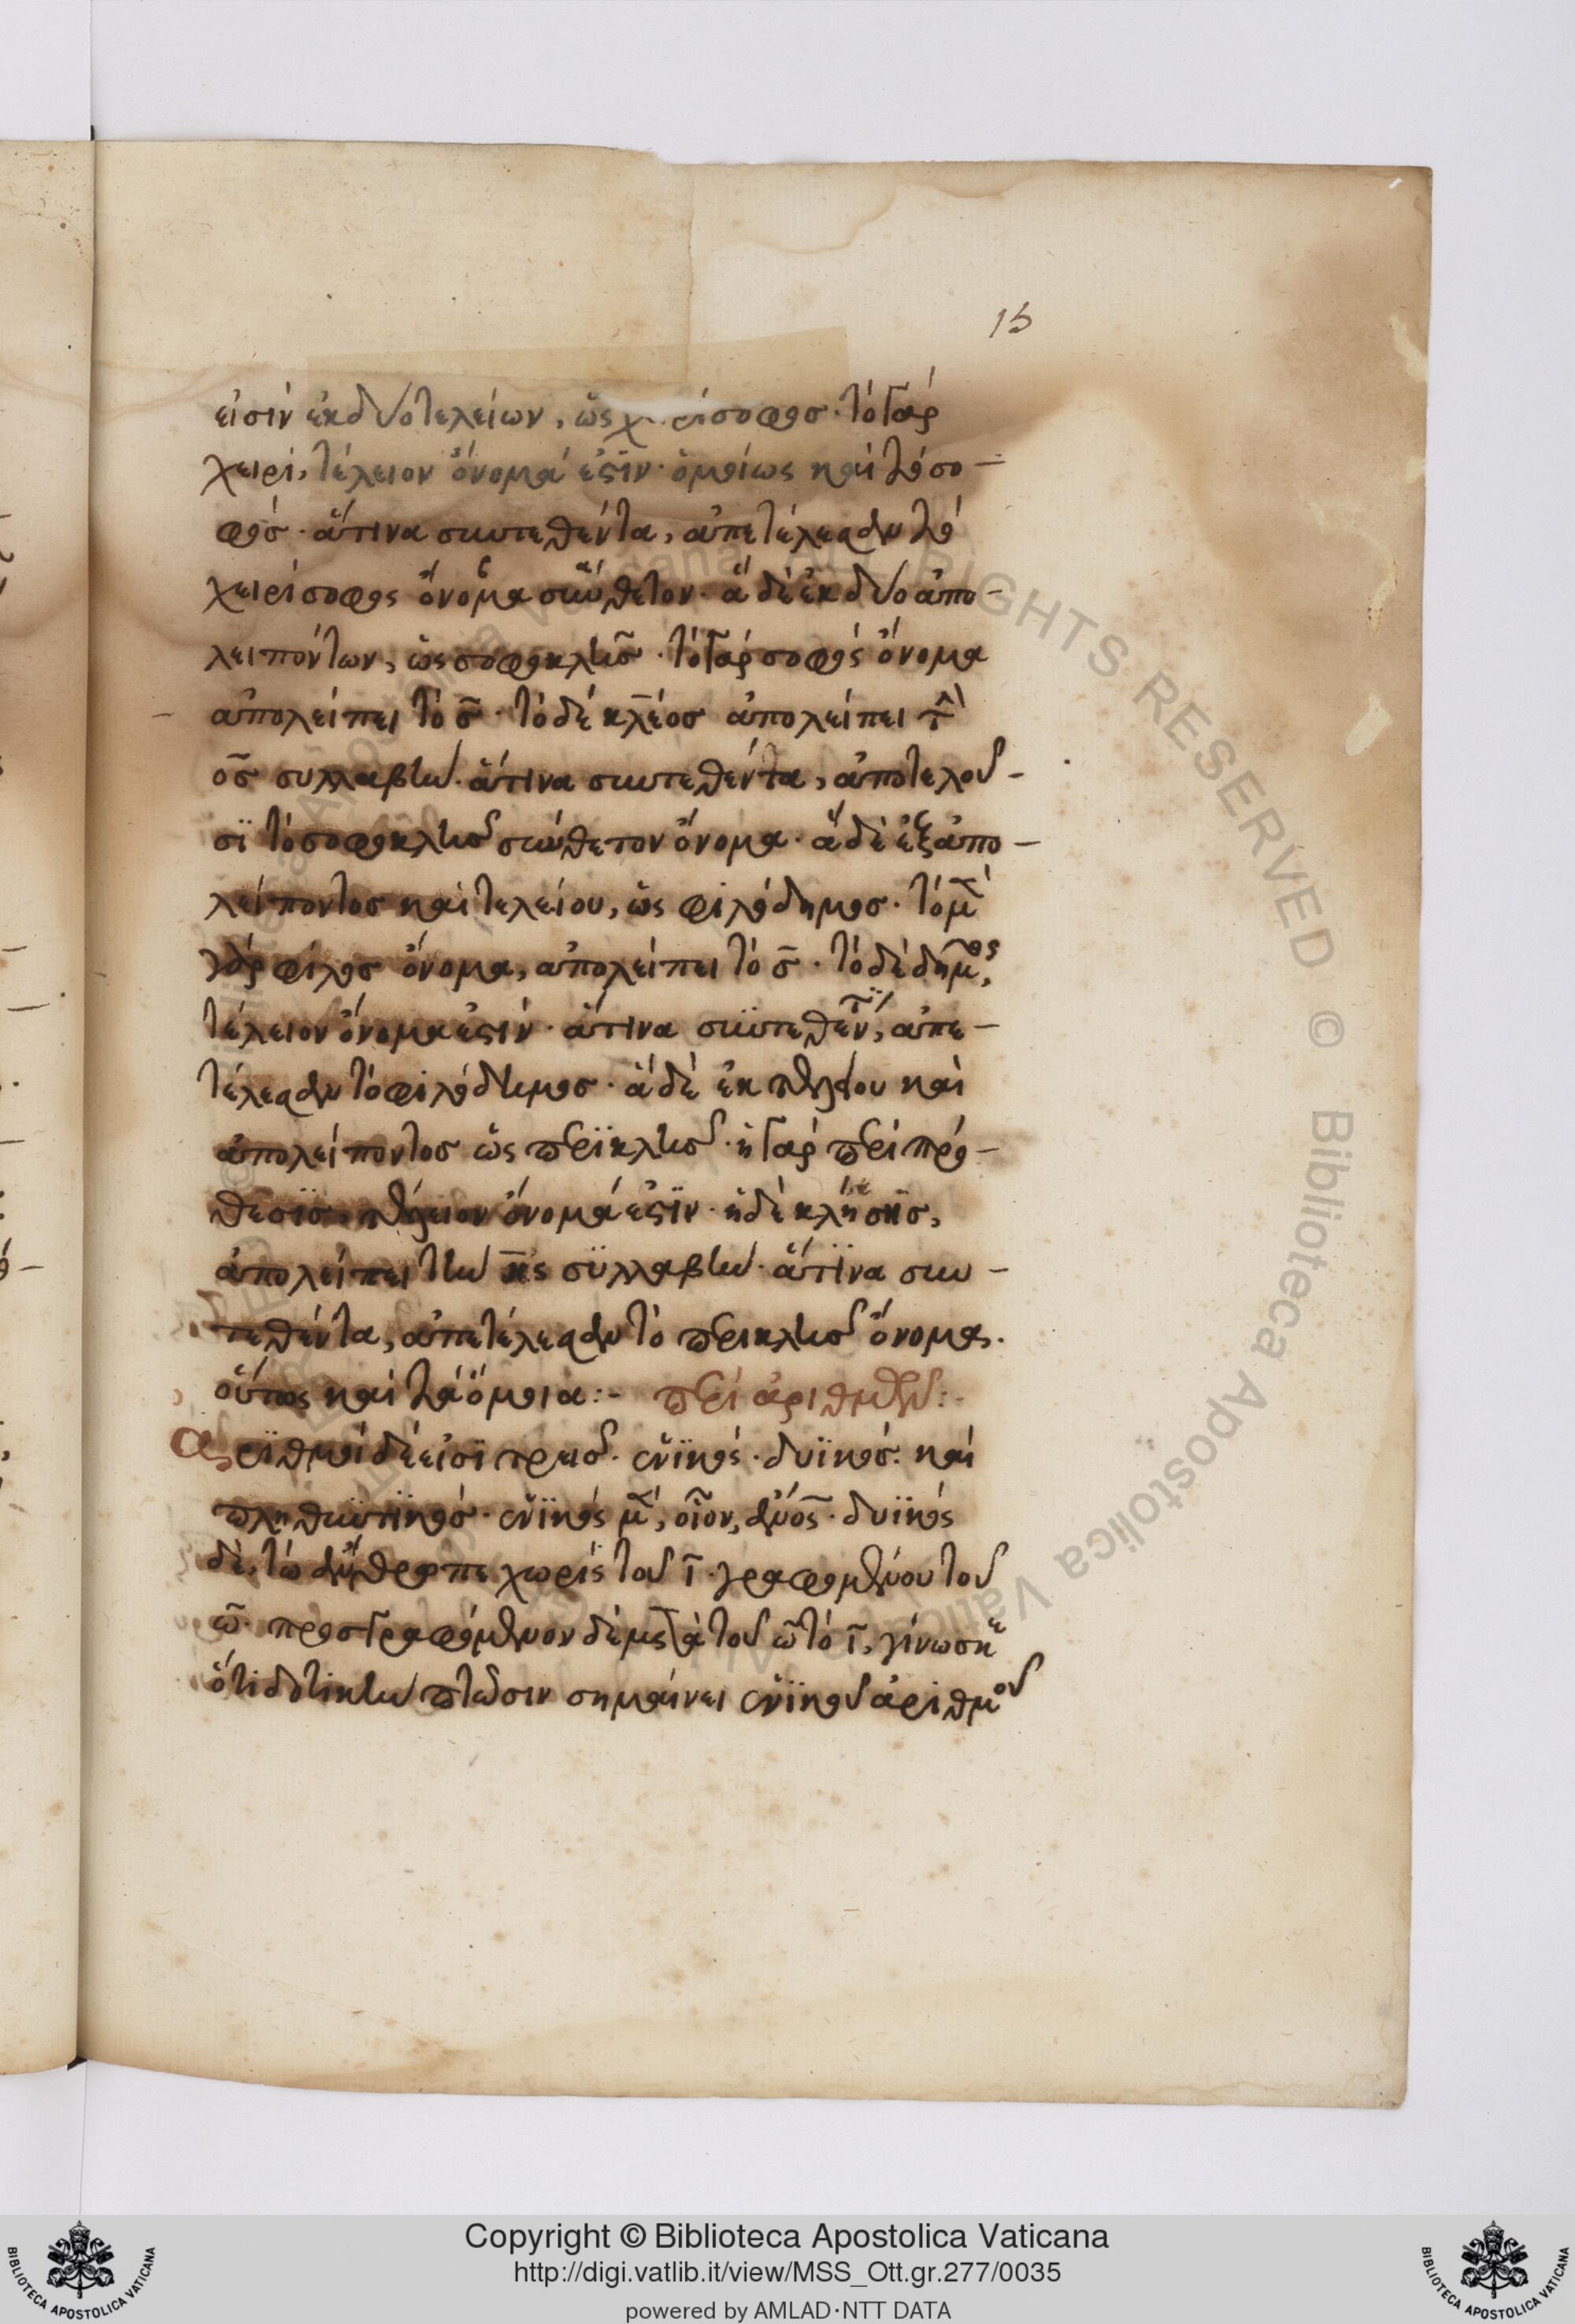 15
εἰσὶν ἐκ δύο τελείων, ὡς χ ρίσοφος· τὸ γὰρ
χειρὶ, τέλειον ὄνομά ἐστιν· ὁμοίως καὶ τὸ σο-
φός· ἅτινα συντεθέντα, ἀπετέλεσαν τὸ
χειρίσοφος ὄνομα σύνθετον· ἃ δὲ ἐκ δύο ἀπο-
λειπόντων, ὡς σοφοκλῆς· τὸ γὰρ σοφὸς ὄνομα
ἀπολείπει τὸ σ̄· τὸ δὲ κλέος ἀπολείπει τὴν
ος συλλαβὴν· ἅτινα συντεθέντα, ἀποτελοῦ-
σϊ τὸ σοφοκλῆς σύνθετον ὄνομα· ἃ δὲ ἐξ ἀπο-
λείποντος καὶ τελείου, ὡς φιλόδημος· τὸ μὲν
γὰρ φίλος ὄνομα, ἀπολείπει τὸ σ̄· τὸ δὲ δῆμος,
τέλειον ὄνομα ἐστὶν· ἅτινα συντεθέντα, ἀπε-
τέλεσαν τὸ φιλόδημος· ἃ δὲ ἐκ τελείου καὶ
ἀπολείποντος ὡς περϊκλῆς· ἡ γὰρ περὶ πρό-
θεσϊς, τέλειον ὄνομά ἐστϊν· ἡ δὲ κλῆσϊς,
ἀπολείπει τὴν σϋλλαβὴν· ἅτϊνα συν-
τεθέντα, ἀπετέλεσαν τὸ περικλῆς ὄνομα.
οὕτως καὶ τὰ ὅμοια:- περὶ ἀριθμῶν:-
Αρϊθμοὶ δὲ εἰσϊ τρεῖς· ἑνϊκός· δυϊκός· καὶ
πληθυντϊκός· ἑνϊκὸς μὲν, οἷον, ανος· δυϊκὸς
δὲ, τὼ ἀνθρώπω χωρὶς τοῦ ῑ· γραφομένου τοῦ
ω̄· προσγραφόμενον δὲ μετὰ τοῦ ω̄ τὸ ῑ, γίνωσκε
ὅτι δοτικὴν πτῶσιν σημαίνει ἑνϊκοῦ ἀριθμοῦ
Copyright © Biblioteca Apostolica Vaticana
http://digi.vatlib.it/view/MSS_Ott.gr.277/0035
powered by AMLAD·NTT DATA
BIBLIOTECA APOSTOLICA VATICANA
BIBLIOTECA APOSTOLICA VATICANA
ALL RIGHTS RESERVED © Biblioteca Apostolica Vaticana